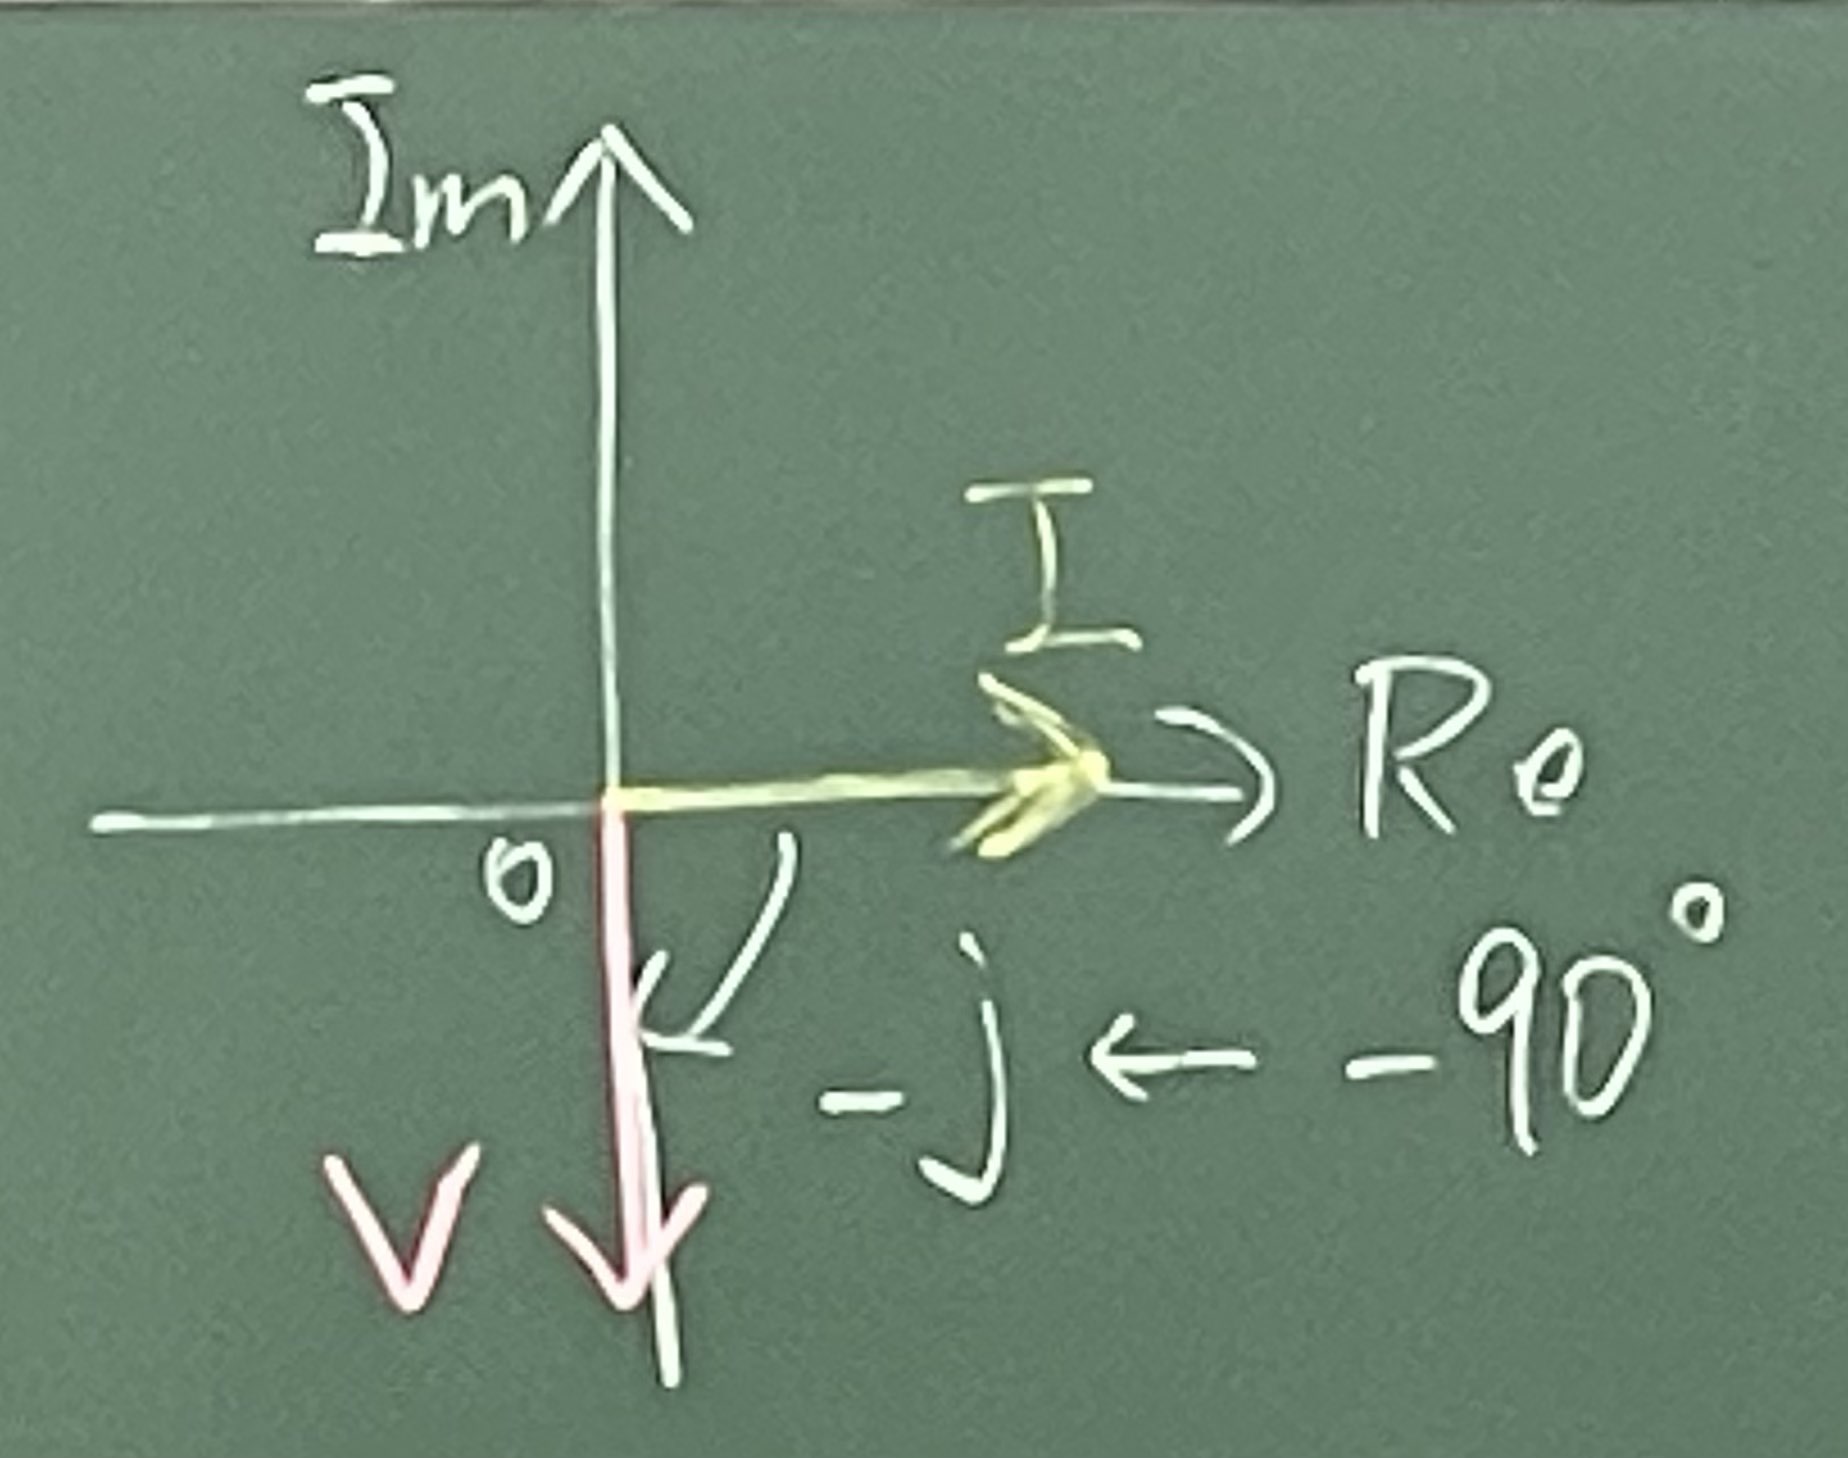 Im
I
Re
0
-j ← -90°
V